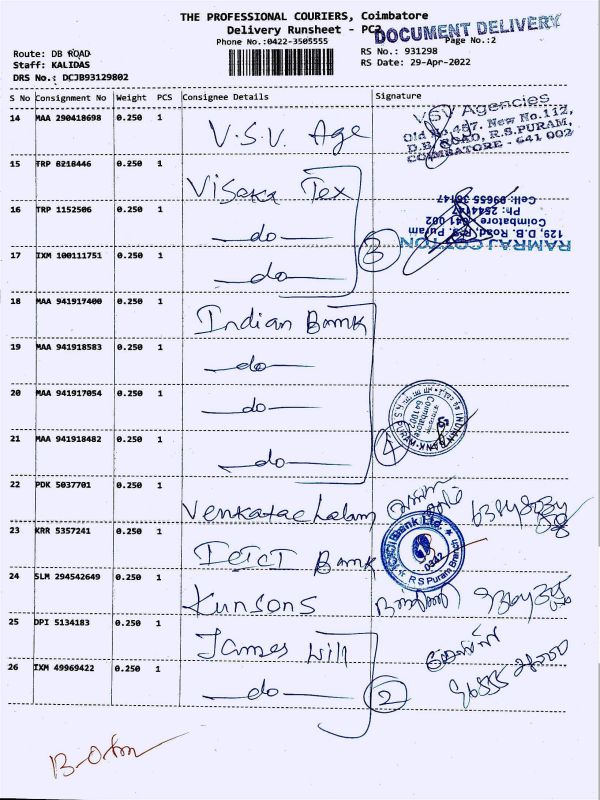 THE PROFESSIONAL COURIERS, Coimbatore
Delivery Runsheet - PC2
DOCUMENT DELIVERY
Phone No.:0422-3505555
Page No.:2
Route: DB ROAD
Staff: KALIDAS
DRS No.: DCJB93129802
RS No.: 931298
RS Date: 29-Apr-2022
S No Consignment No Weight PCS Consignee Details Signature
14 MAA 290418698 0.250 1 V.S.V. Age
VSV Agencies
Old No.487, New No.112,
D.B. ROAD, R.S.PURAM,
COIMBATORE - 641 002
15 TRP 8218446 0.250 1 Visaka Tex
16 TRP 1152506 0.250 1 do
17 IXM 100111751 0.250 1 do
3
RAMRAJ COTTON
129, D.B. Road, R.S. Puram
Coimbatore - 641 002
18 MAA 941917400 0.250 1 Indian Bank
19 MAA 941918583 0.250 1 do
20 MAA 941917054 0.250 1 do
21 MAA 941918482 0.250 1 do
4
INDIAN BANK
R S PURAM
Coimbatore
641002
22 PDK 5037701 0.250 1 Venkatachalam
23 KRR 5357241 0.250 1 ICICI Bank
ICICI Bank Ltd.
0342
R S Puram Branch
24 SLM 294542649 0.250 1 Kunsons
25 DPI 5134183 0.250 1 James Will
26 IXM 49969422 0.250 1 do
2